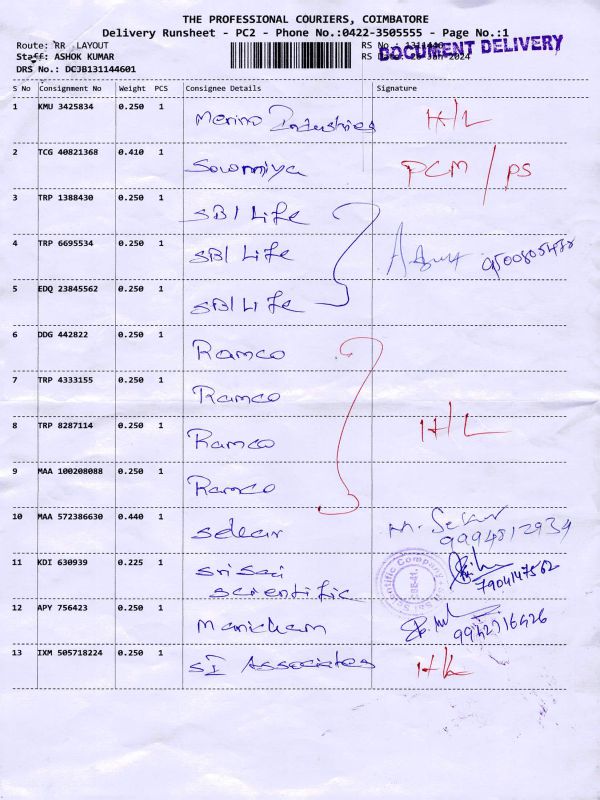 THE PROFESSIONAL COURIERS, COIMBATORE
Delivery Runsheet - PC2 - Phone No.:0422-3505555 - Page No.:1
Route: RR LAYOUT RS No.:
DOCUMENT DELIVERY
Staff: ASHOK KUMAR 2024
DRS No.: DCJB131144601
S No Consignment No Weight PCS Consignee Details Signature
1 KMU 3425834 0.250 1 Merino Industries H/L
2 TCG 40821368 0.410 1 Sowmiya PCM / PS
3 TRP 1388430 0.250 1 SBI Life
4 TRP 6695534 0.250 1 SBI Life
5 EDQ 23845562 0.250 1 SBI Life
6 DDG 442822 0.250 1 Ramco
7 TRP 4333155 0.250 1 Ramco
8 TRP 8287114 0.250 1 Ramco H/L
9 MAA 100208088 0.250 1 Ramco
10 MAA 572386630 0.440 1 Sekar M. Sekar
9994812934
11 KDI 630939 0.225 1 Sri Sai
Scientific 7904147562
12 APY 756423 0.250 1 Manickam 9942716426
13 IXM 505718224 0.250 1 SI Associates H/L